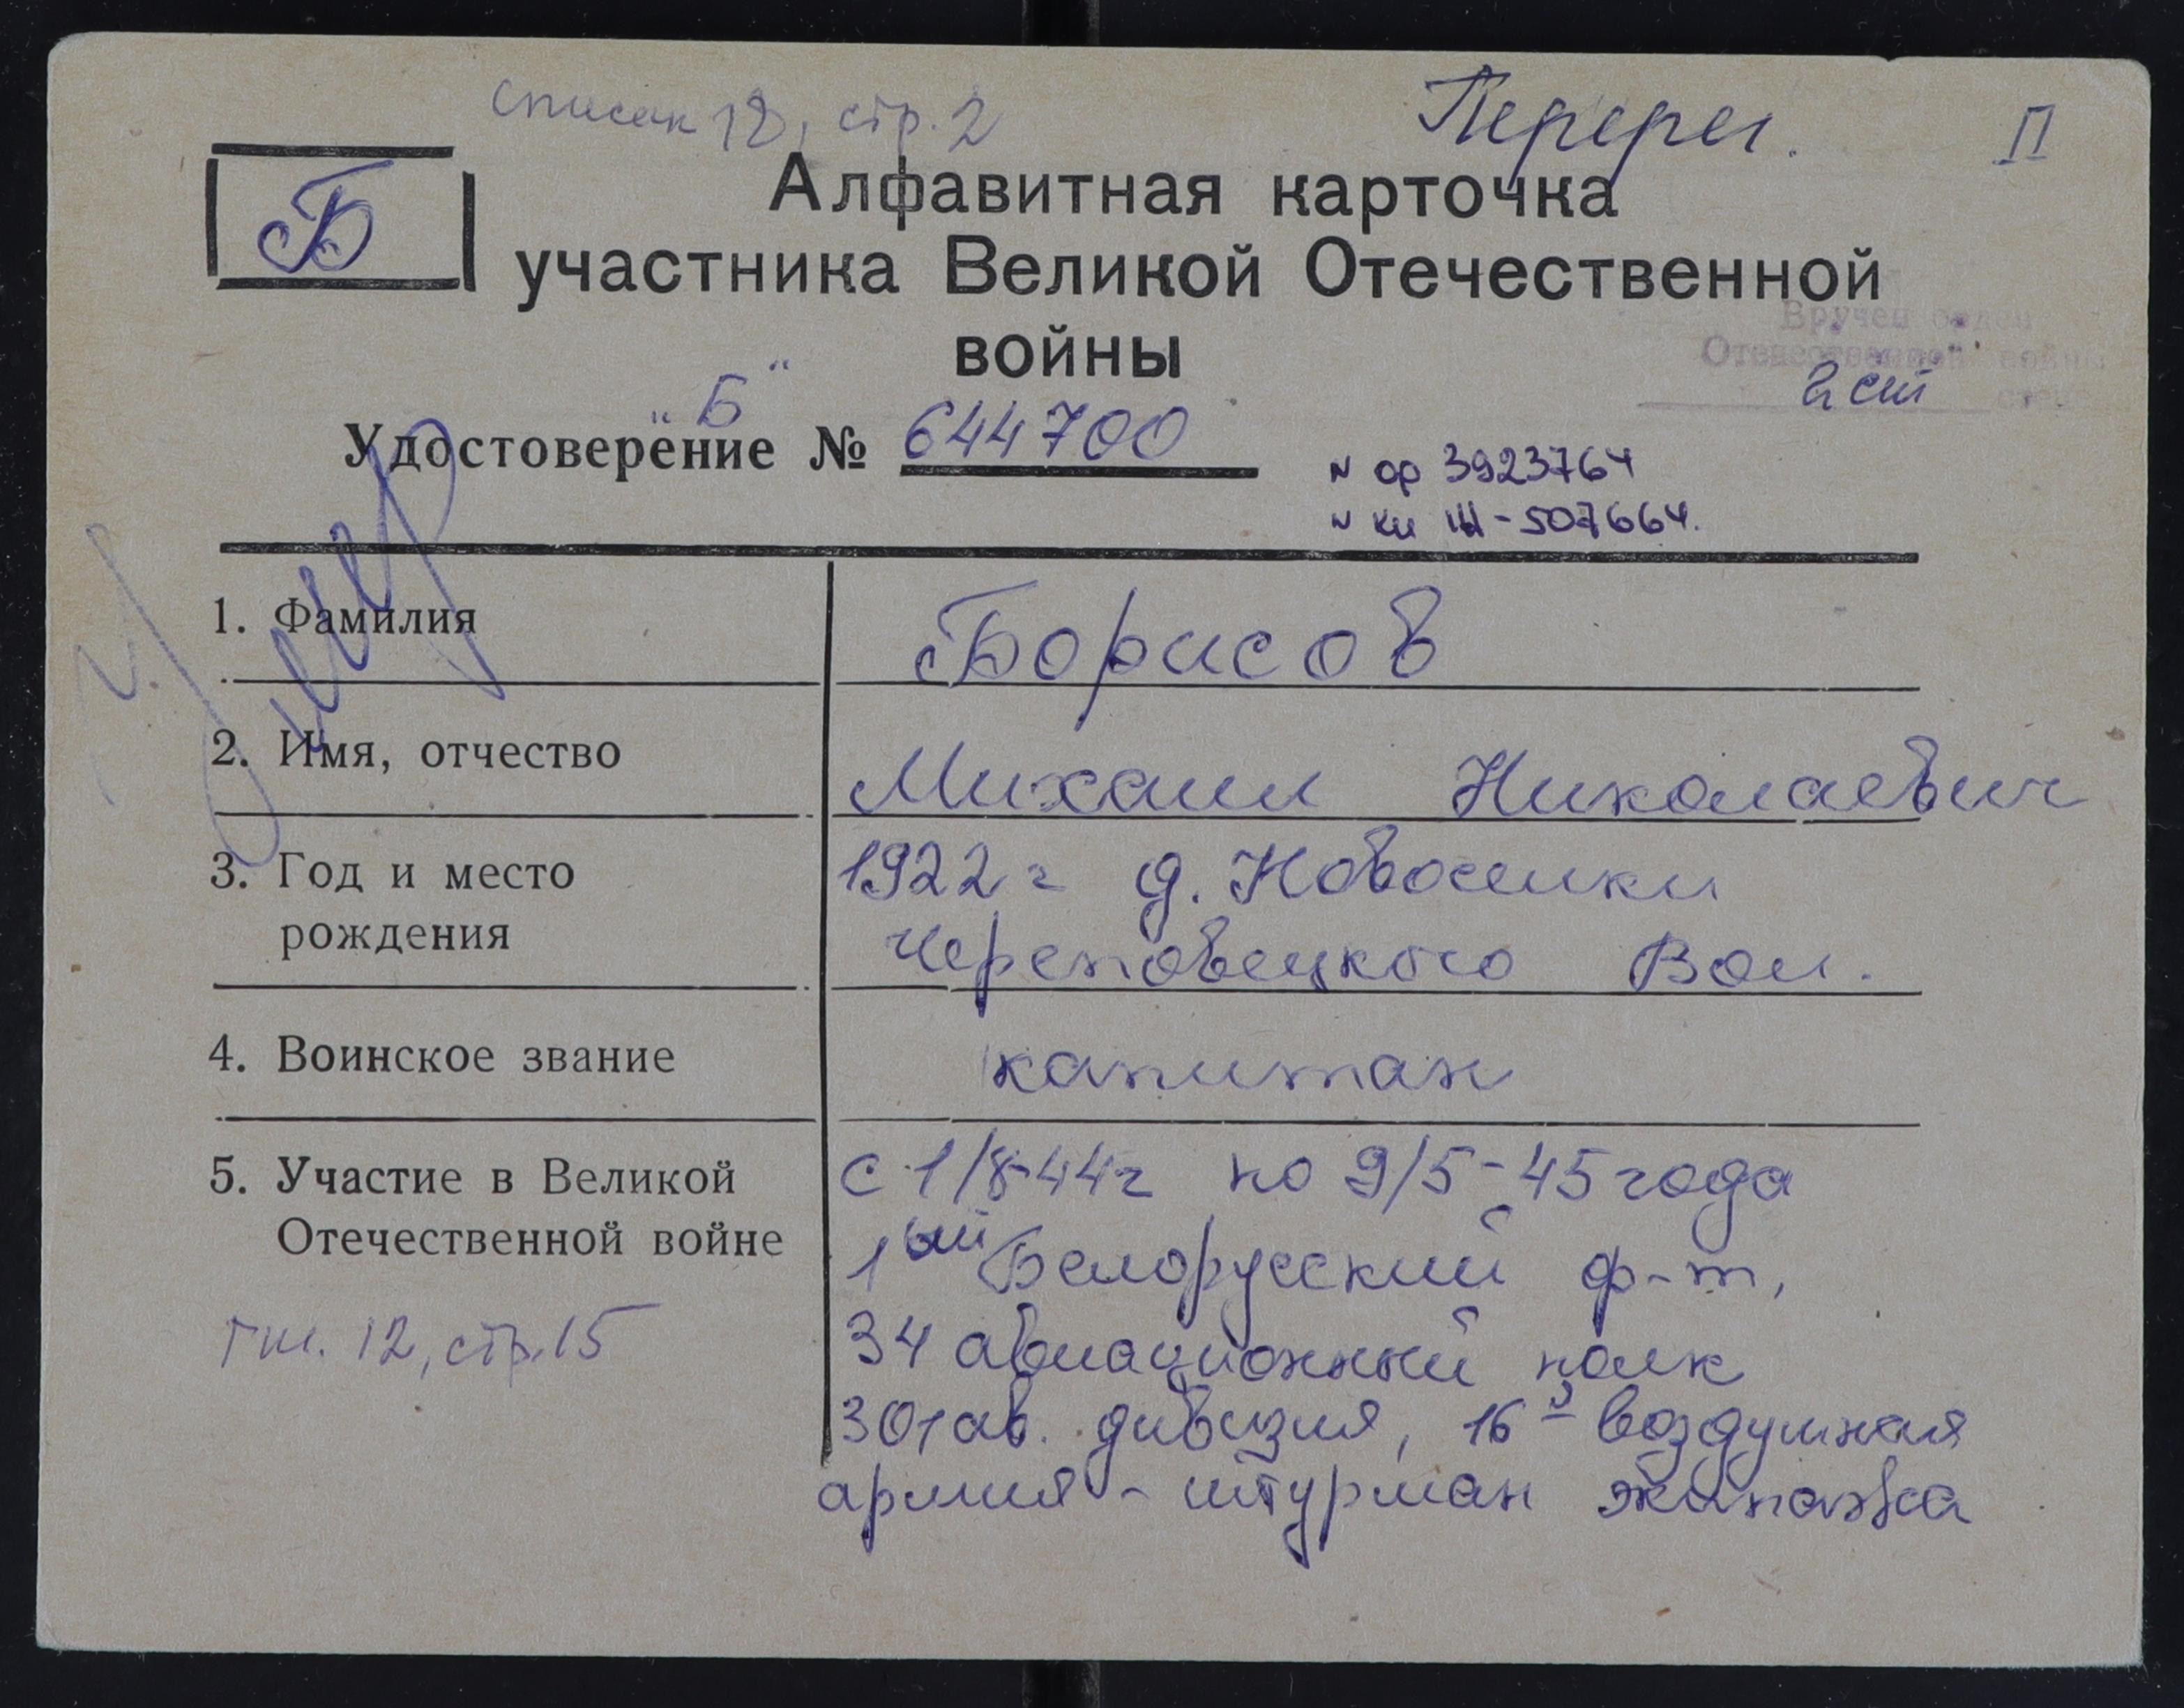 список 18, стр. 2
Перерег.
II
Б
Алфавитная карточка
участника Великой Отечественной
войны
Вручен орден
Отечественной войны
2 ст
степ
"Б"
Удостоверение № 644700
N ор 3923764
N кн Ш-507664.
умер
1. Фамилия
Борисов
2. Имя, отчество
Михаил Николаевич
3. Год и место
рождения
1922 г д. Новоселки
Череповецкого Вол.
4. Воинское звание
капитан
5. Участие в Великой
Отечественной войне
с 1/8-44г по 9/5-45 года
1ый Белорусский ф-т,
34 авиационный полк
301 ав. дивизия, 16я воздушная
армия - штурман экипажа
стр. 15